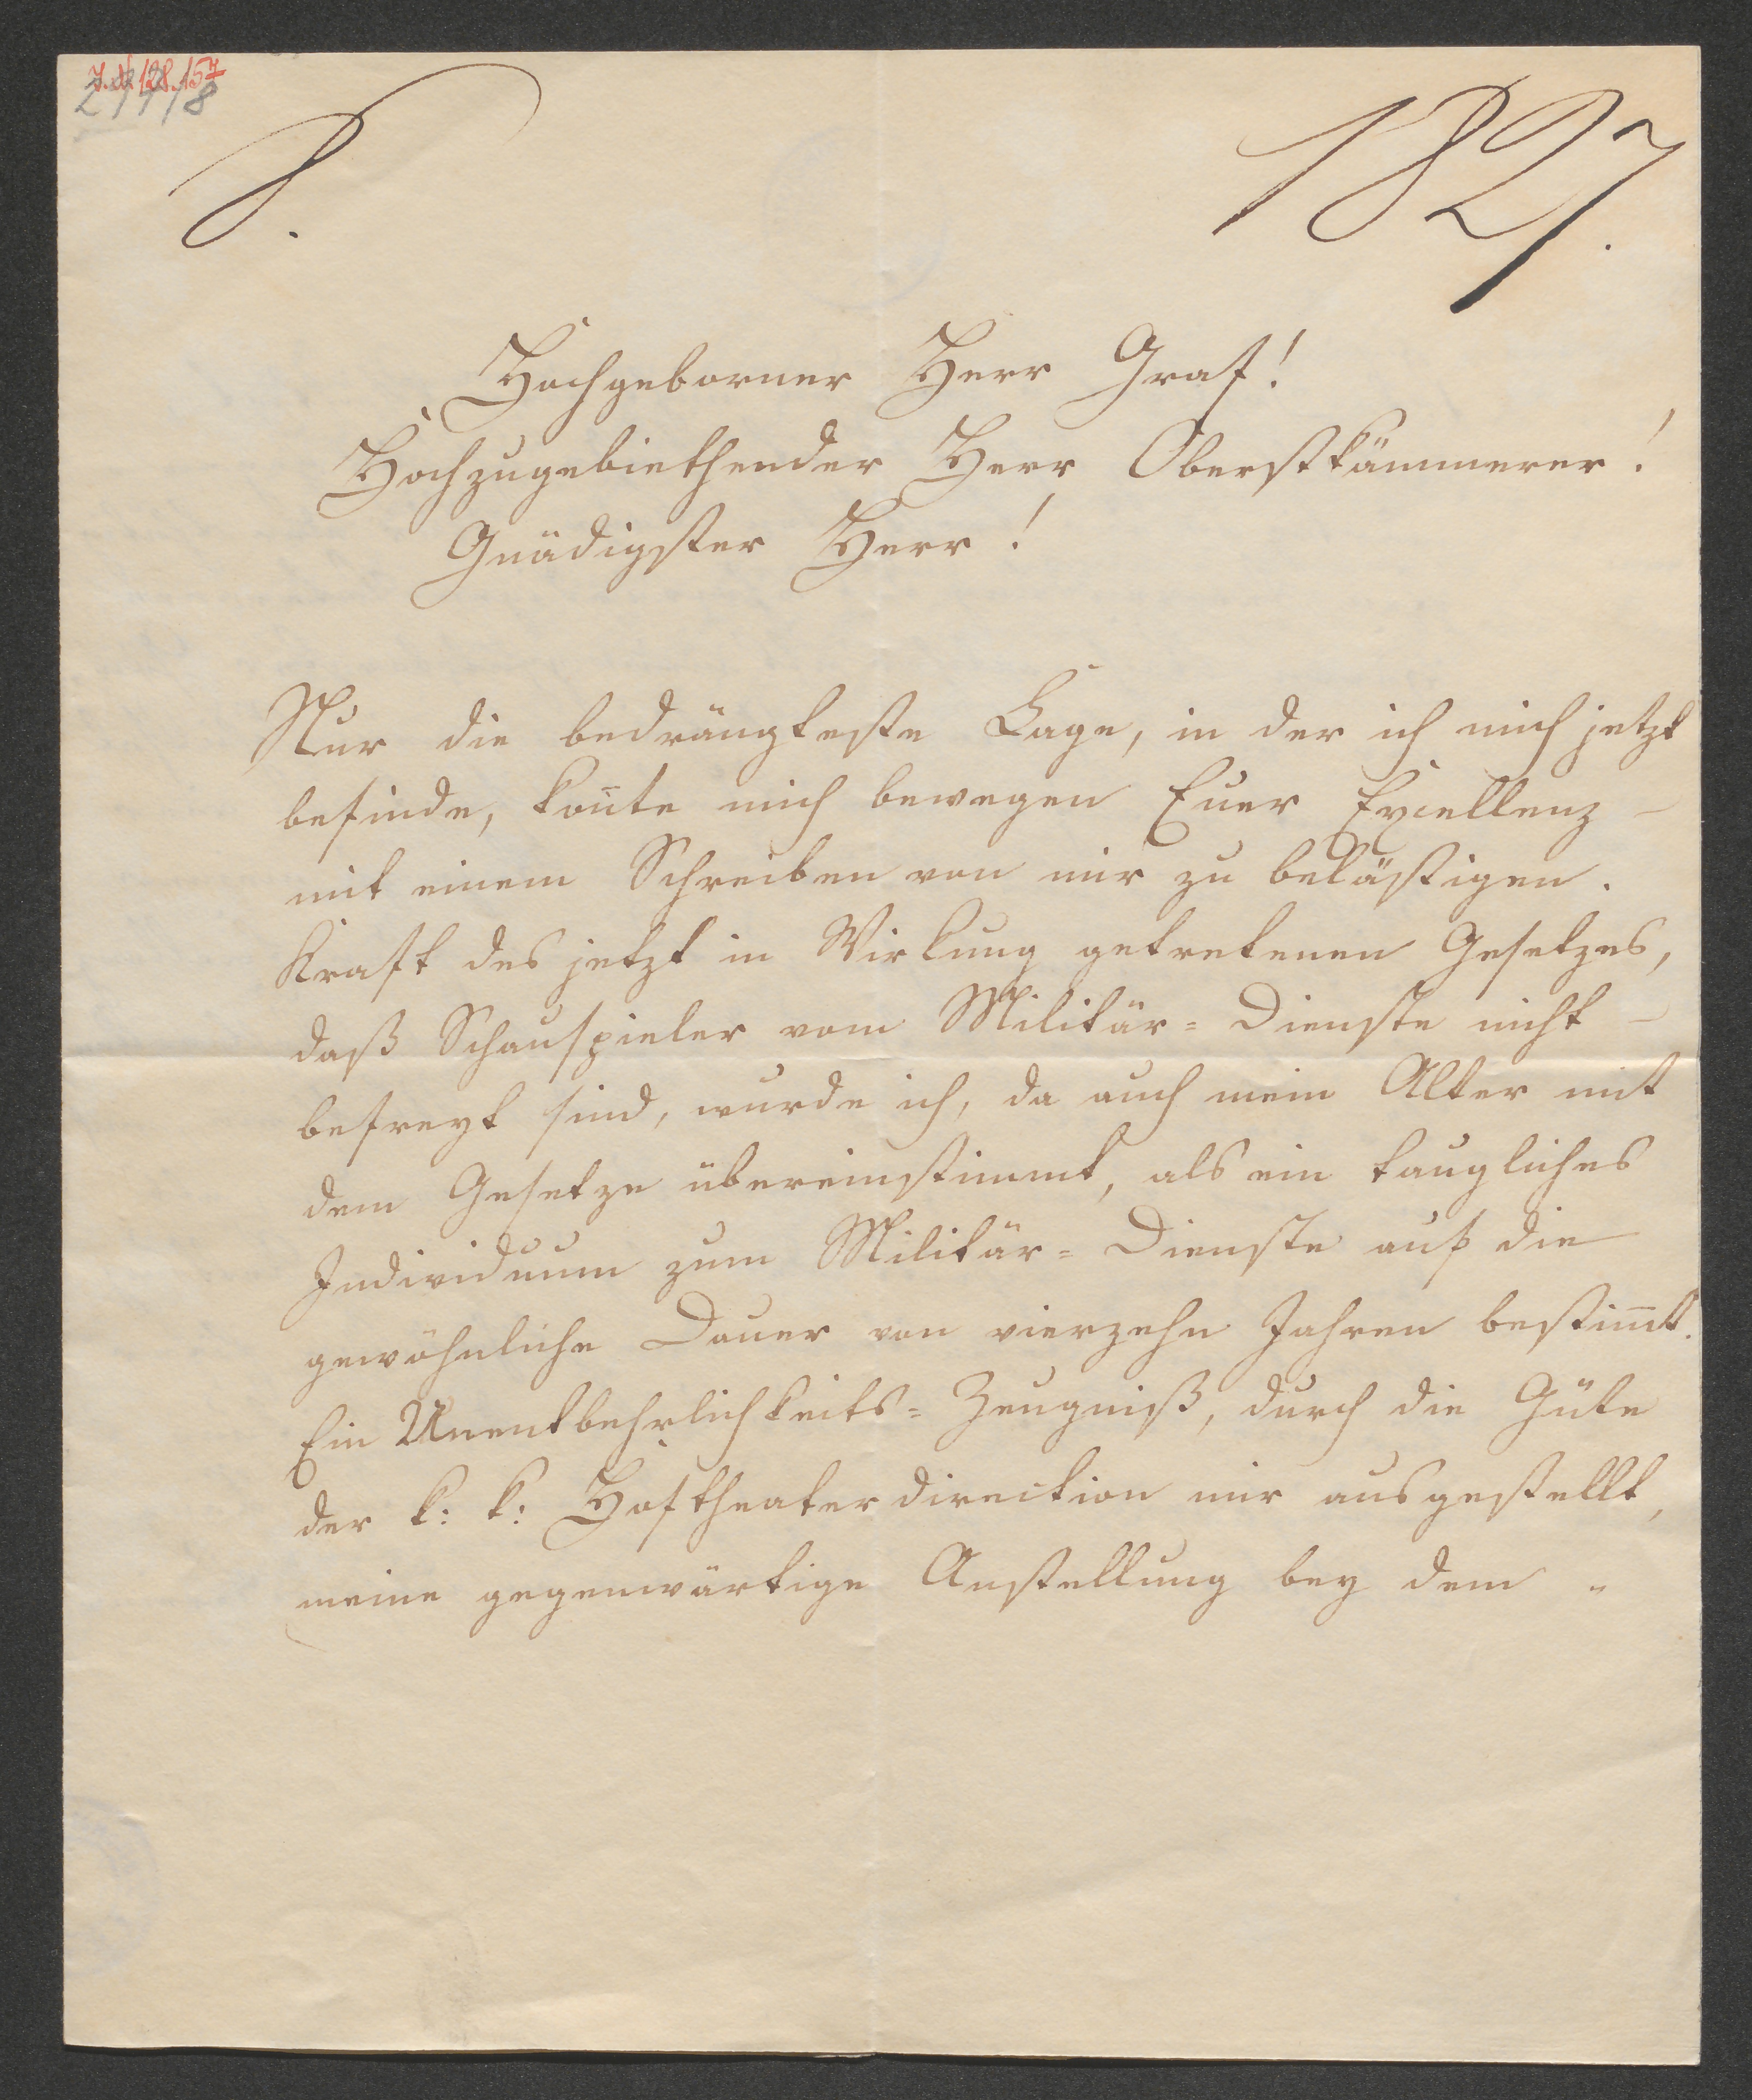 J.N. 128.157
8.
1827.
Hochgeborner Herr Graf!
Hochzugebiethender Herr Oberstkämmerer!
Gnädigster Herr!
Nur die bedrängteste Lage, in der ich mich jetzt
befinde, kon̄te mich bewegen Euer Excellenz –
mit einem Schreiben von mir zu belästigen.
Kraft des jetzt in Wirkung getretenen Gesetzes,
daß Schauspieler vom Militär= Dienste nicht –
befreyt sind, wurde ich, da auch mein Alter mit
dem Gesetze übereinstimmt, als ein taugliches
Individuum zum Militär= Dienste auf die
gewöhnliche Dauer von vierzehn Jahren bestim̄t.
Ein Unentbehrlichkeits= Zeugniß, durch die Güte
der k: k: Hoftheaterdirection mir ausgestellt,
meine gegenwärtige Anstellung bey dem "